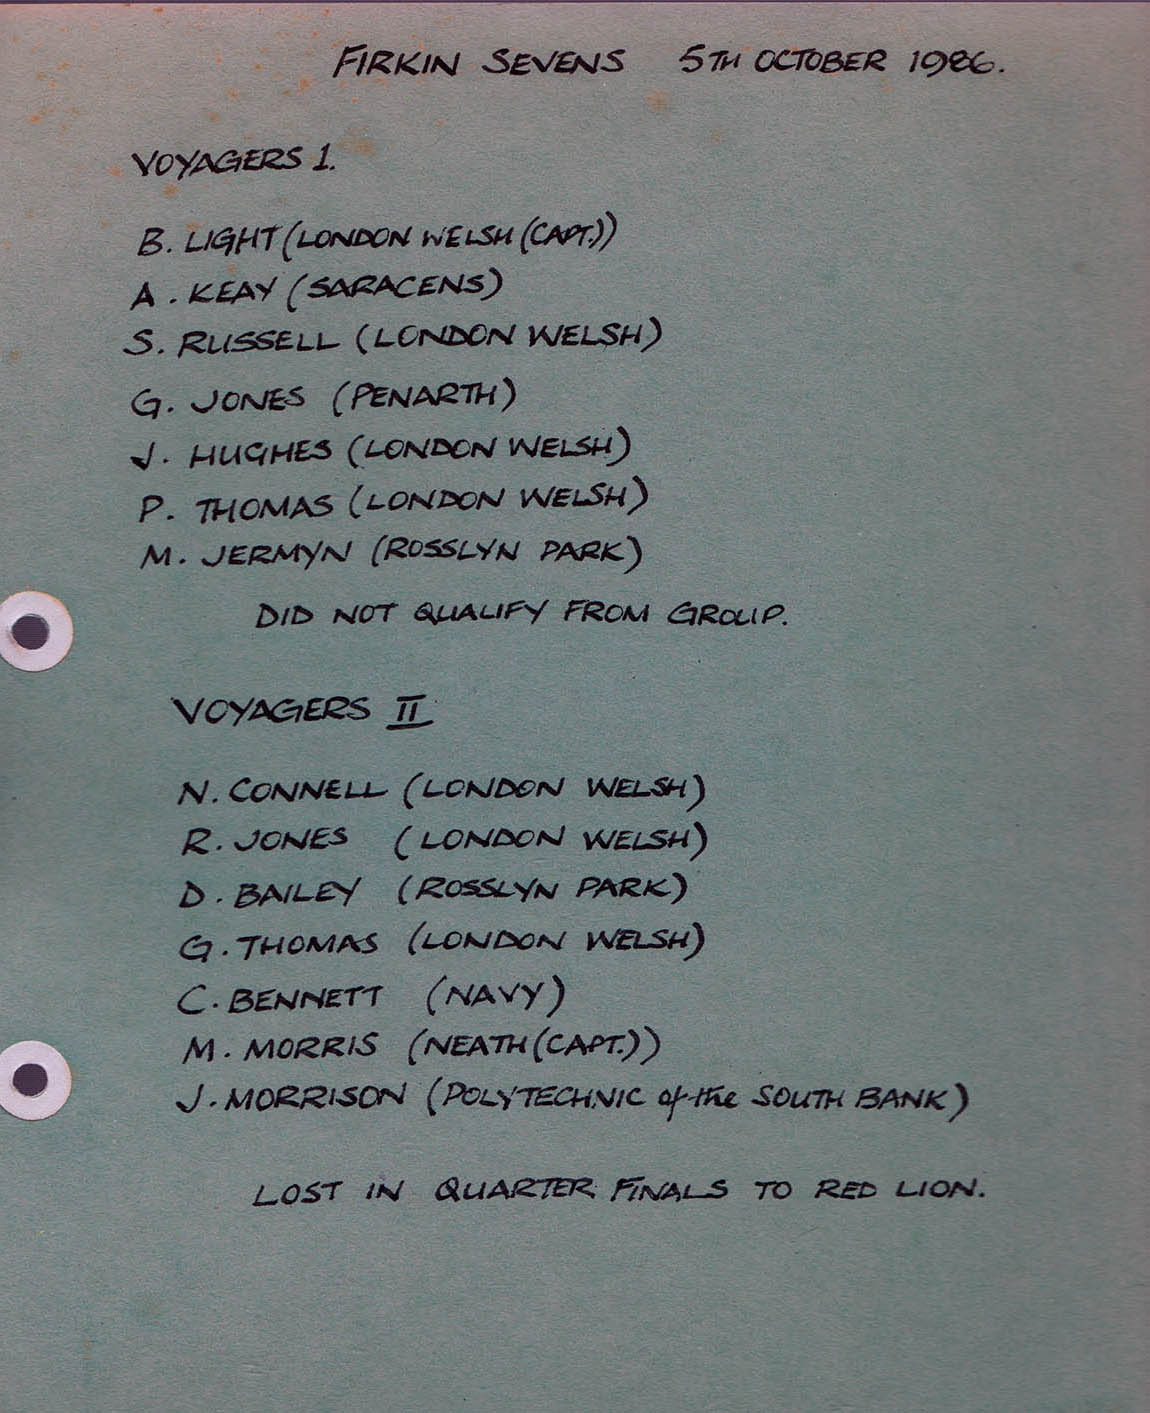 FIRKIN SEVENS 5TH OCTOBER 1986.
VOYAGERS 1.
B. LIGHT (LONDON WELSH (CAPT.))
A. KEAY (SARACENS)
S. RUSSELL (LONDON WELSH)
G. JONES (PENARTH)
J. HUGHES (LONDON WELSH)
P. THOMAS (LONDON WELSH)
M. JERMYN (ROSSLYN PARK)
DID NOT QUALIFY FROM GROUP.
VOYAGERS II
N. CONNELL (LONDON WELSH)
R. JONES (LONDON WELSH)
D. BAILEY (ROSSLYN PARK)
G. THOMAS (LONDON WELSH)
C. BENNETT (NAVY)
M. MORRIS (NEATH (CAPT.))
J. MORRISON (POLYTECHNIC of the SOUTH BANK)
LOST IN QUARTER FINALS TO RED LION.